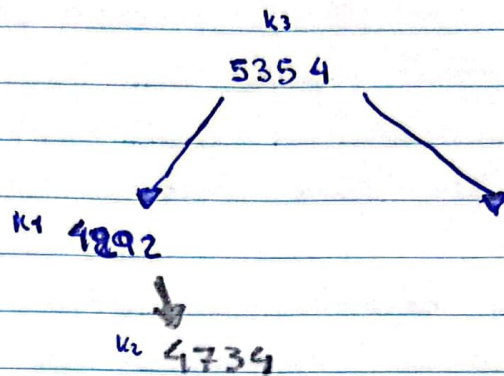 K3
5354
K1 4292
K2 4734